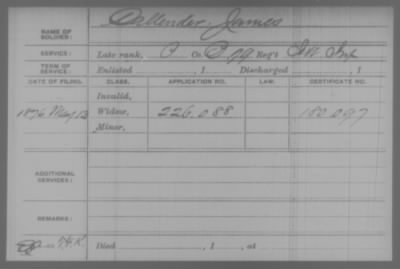 NAME OF SOLDIER: Callender, James
SERVICE: Late rank, Co. Reg't Inf
TERM OF SERVICE: Enlisted , 1 Discharged , 1
DATE OF FILING. CLASS. APPLICATION NO. LAW. CERTIFICATE NO.
Invalid,
1876 May 13 Widow, 226.088 180.097
Minor,
ADDITIONAL SERVICES:
REMARKS:
Died , 1 , at